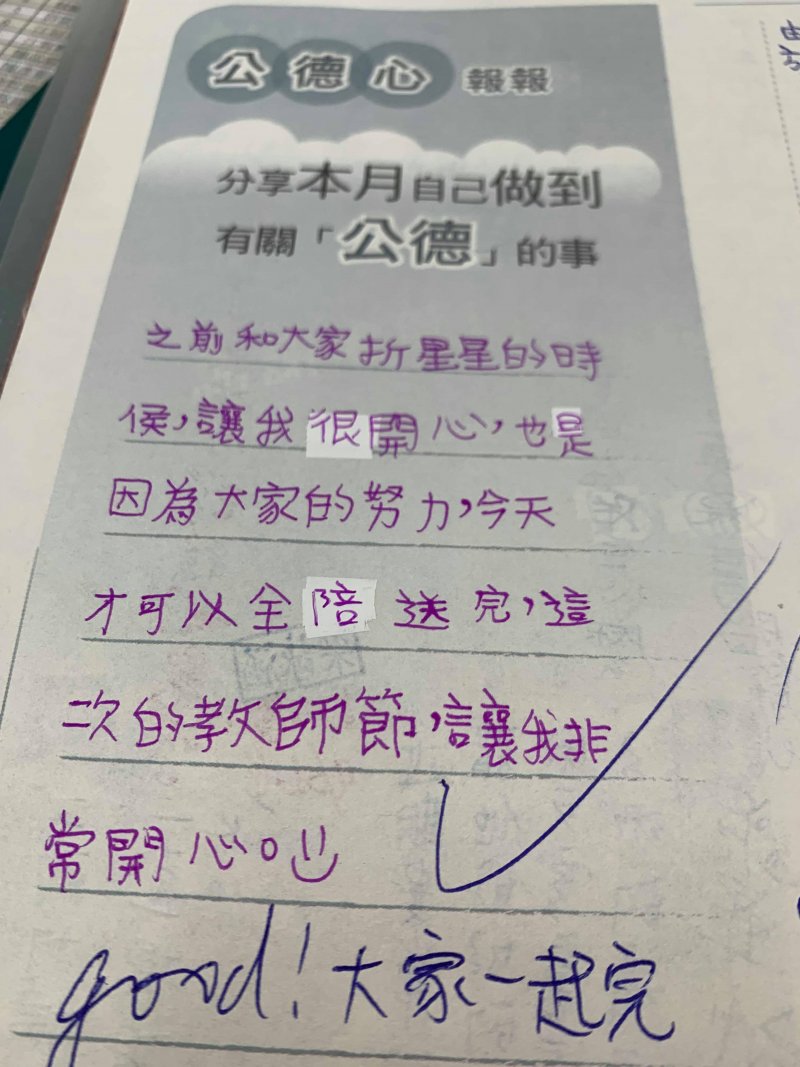 公德心 報報
分享本月自己做到
有關「公德」的事
之前和大家折星星的時
侯，讓我很開心，也是
因為大家的努力，今天
才可以全陪送完，這
次的教師節，讓我非
常開心。
good！大家一起完